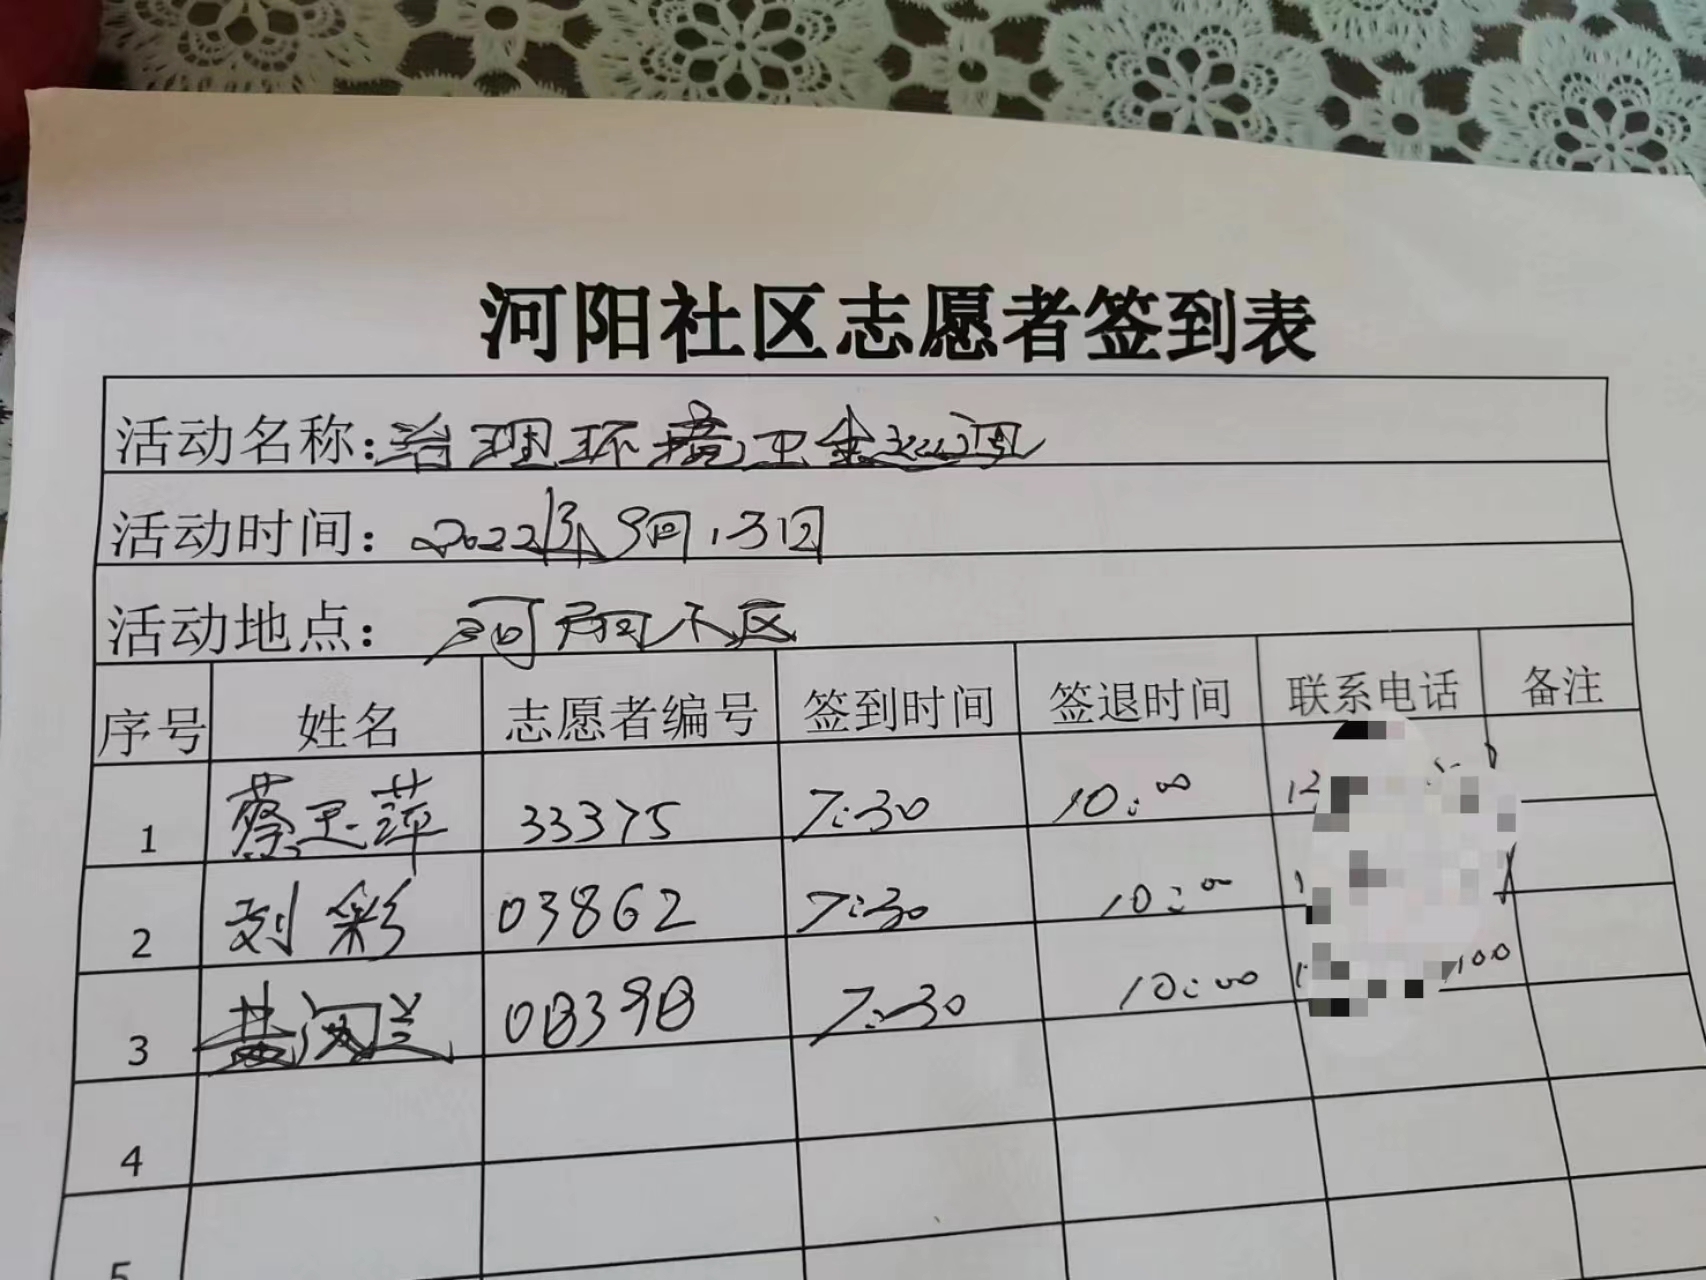 河阳社区志愿者签到表
活动名称:治理环境卫生巡逻
活动时间: 2022年9月13日
活动地点: 河阳小区
序号 姓名 志愿者编号 签到时间 签退时间 联系电话 备注
1 蔡玉萍 33375 7:30 10:00
2 刘彩 03862 7:30 10:00
3 兰 7:30 10:00 100
4
5